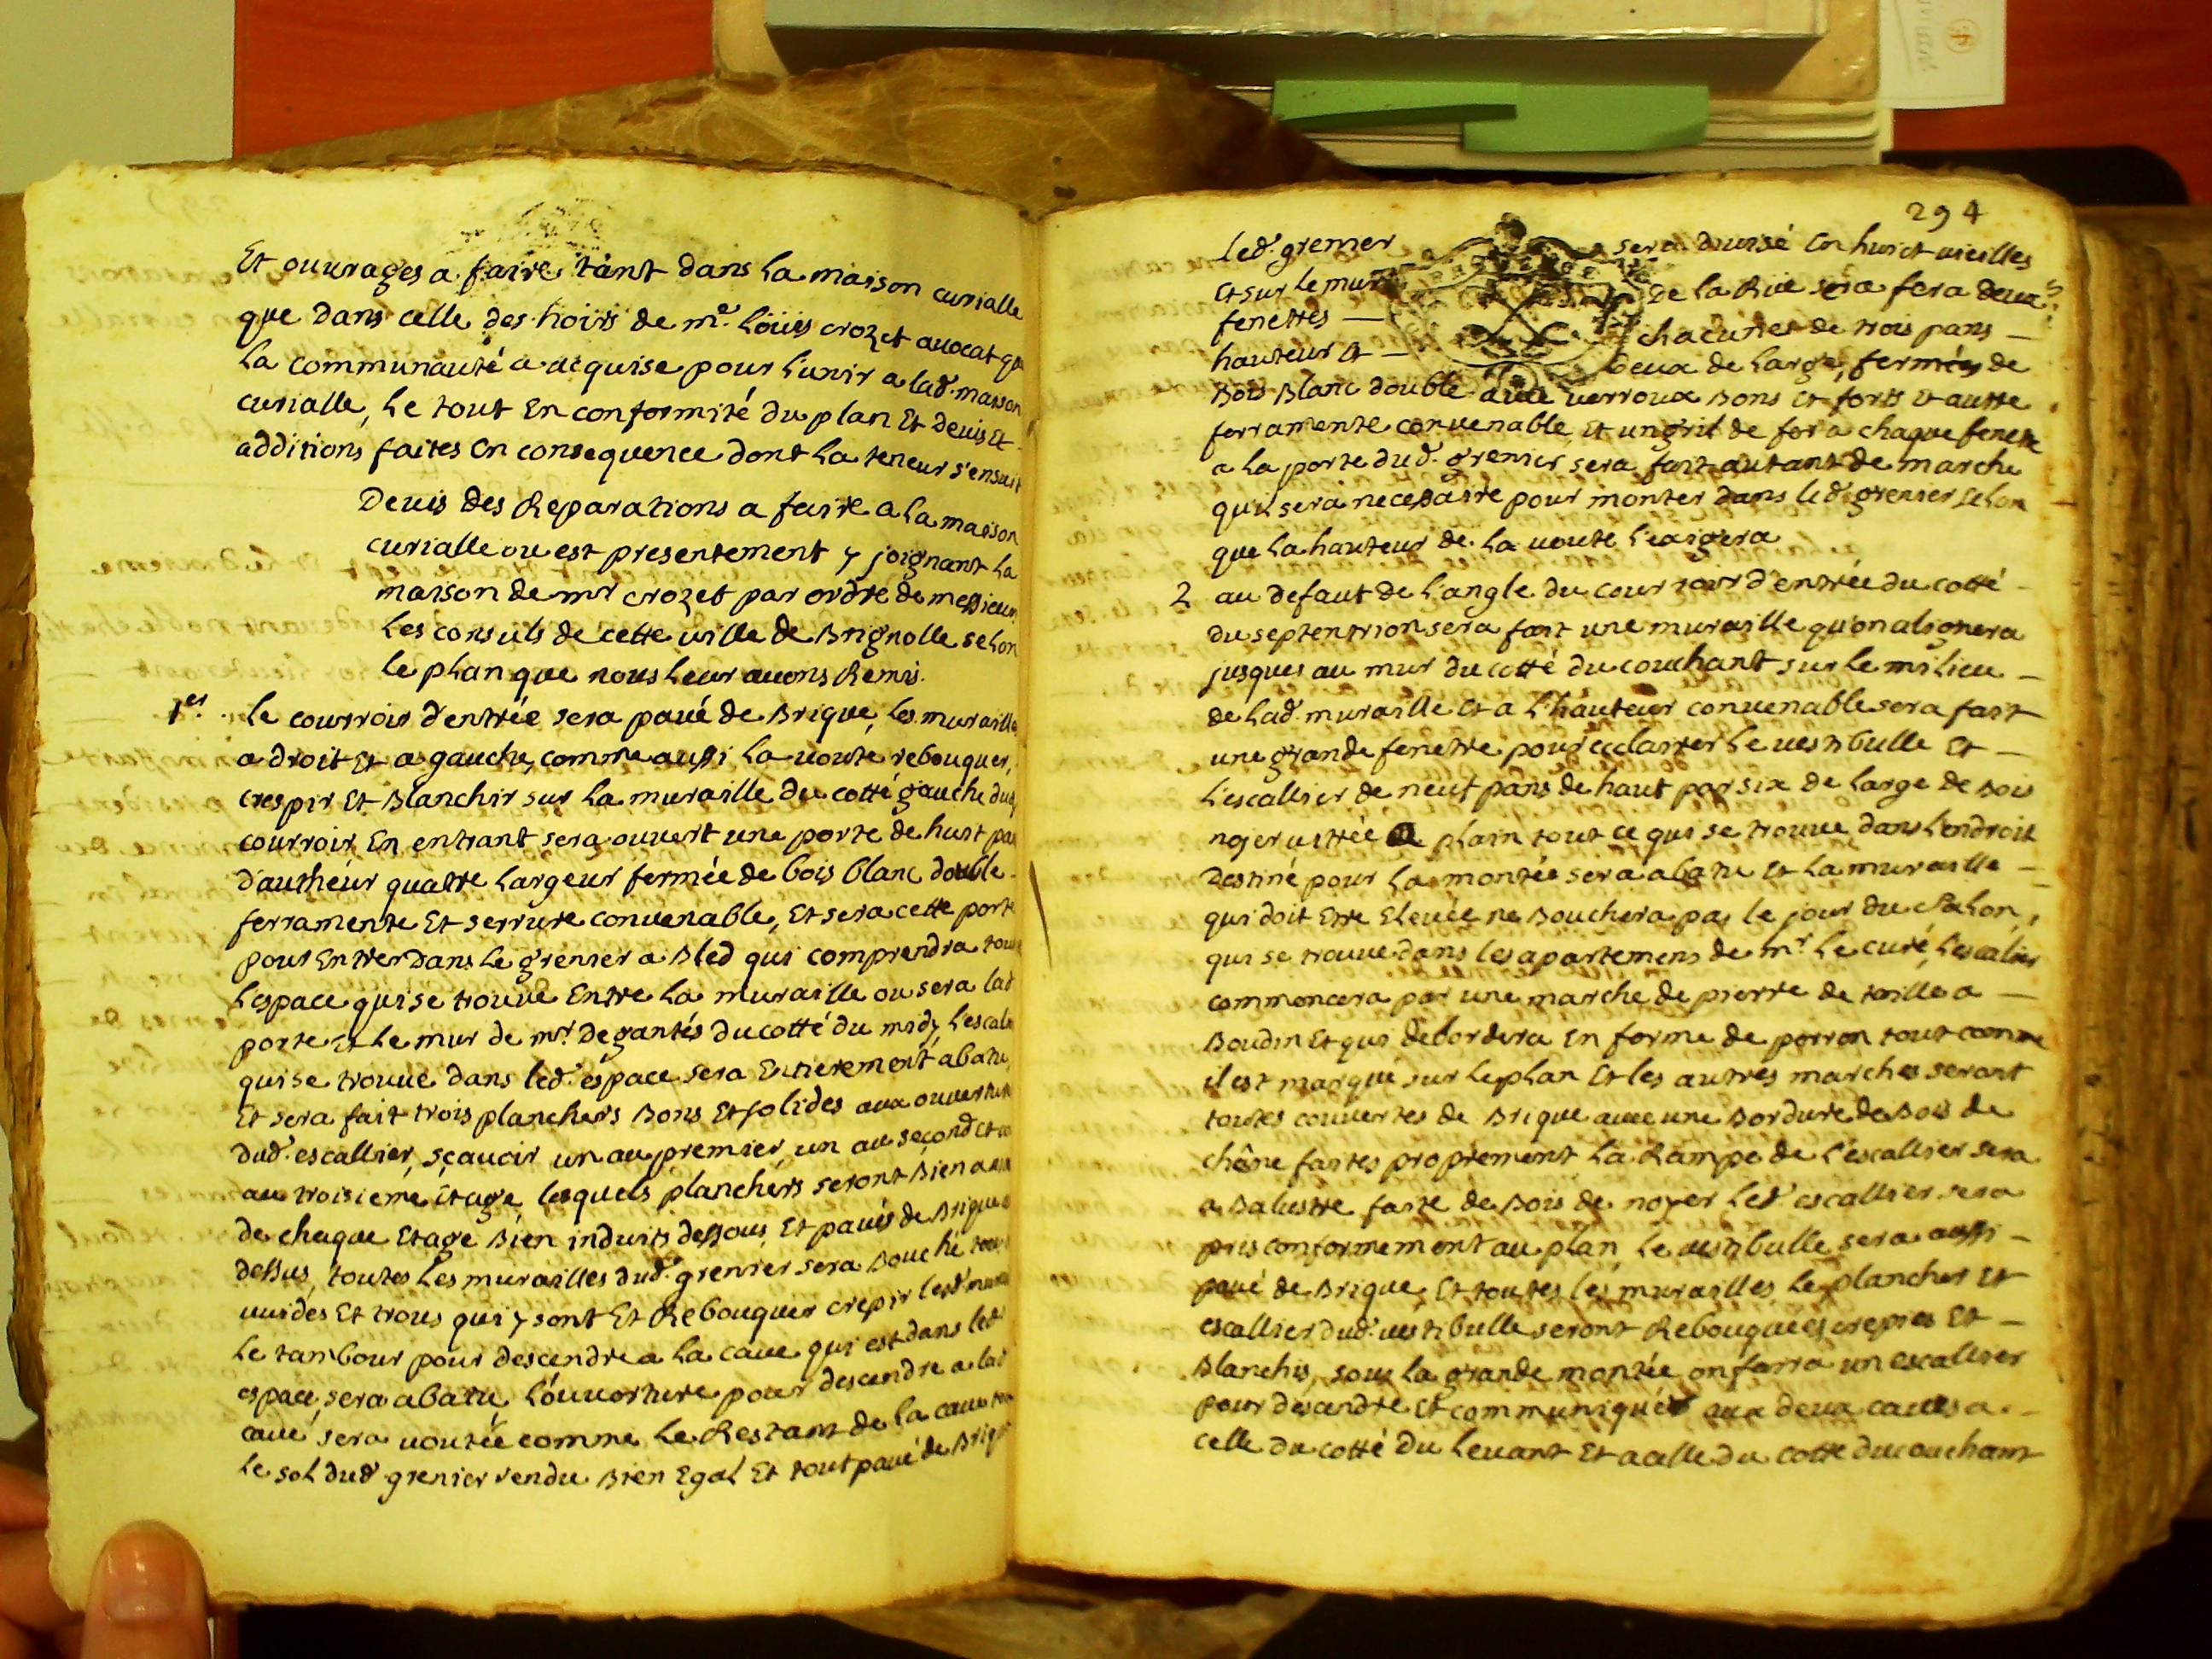 Et ouvrages a faire tant dans la maison curialle
que dans celle des hoirs de me. Loüis crozet avocat que
la communauté a acquise pour l'unir a lad. maison
curialle, le tout En conformité du plan Et devis Et
additions faites En consequence dont la teneur s'ensuit
Devis des Reparations a faire a la maison
curialle ou est presentement y joignant la
maison de mr crozet par ordre de messieurs
les consuls de cette ville de Brignolle selon
le plan que nous leur avons Remis.
1er. le courroir d'entrée sera pavé de Brique, les murailles
a droit Et a gauche, comme aussi la voute rebouquer,
crespir Et Blanchir sur la muraille du cotté gauche dud.
courroir En entrant sera ouvert une porte de huit pans
d'autheur quattre Largeur fermée de bois blanc double
ferramente Et serrure convenable, Et sera cette porte
pour Entrer Dans le grenier a Bled qui comprendra tout
l'espace qui se trouve Entre la muraille ou sera lad.
porte Et le mur de mr. Degantés du cotté du midy l'escalier
qui se trouve dans led. espace sera Entierement abatu
Et sera fait trois planchers Bons Et solides aux ouvertures
dud. escallier, sçavoir un au premier, un au second et un
au troisieme Etage lesquels planchers seront Bien
de chaque Etage Bien induits dessous, Et pavés de Brique
dessus, toutes les murailles dud. grenier sera Bouché tous
vuides Et trous qui y sont Et Rebouquer crepir led.
le tambour pour descendre a la cave qui est dans led.
espace, sera abatu, l'ouverture pour descendre a lad.
cave sera voutée comme le Restant de la cave
le sol dud. grenier rendu Bien Egal Et tout pavé de Brique
294
Led. grenier sera divisé En huict
Et sur le mur De la Rüe sera fera deux
fenettes chacunes de trois pans
hauteur Et Deux de large, fermées de
Bois Blanc double avec verroux Bons Et forts Et auttre
ferramente convenable, Et un gril de fer a chaque fenette
a la porte dud. grenier sera fait autant de marche
qu'il sera necessaire pour monter dans led. grenier selon
que la hauteur de la voute l'exigera
2 au defaut de l'angle du courroir d'entrée du cotté
du septentrion sera fait une muraille qu'on alignera
jusques au mur du cotté du couchant sur le milieu
de lad. muraille Et a l'hauteur convenable sera fait
une grande fenettre pour ecclairer le vestibulle Et
l'escallier de neuf pans de haut par six de large de Bois
noyer vittrée a plain tout ce qui se trouve dans l'endroit
Destiné pour la montée sera abatu Et la muraille
qui doit Etre Elevée ne Bouchera pas le jour du salon,
qui se trouve dans les apartemens de mr. le curé, l'escalier
commencera par une marche de pierre de taille a
Boudin Et qui debordera En forme de perron tout comme
il est marqué sur le plan Et les autres marches seront
toutes couvertes de Brique avec une Bordure de Bois de
chêne faites proprement la Rampe de l'escallier sera
a Balustre faite de Bois de noyer led. escallier sera
pris conformement au plan le vestibulle sera aussi
pavé de Brique, Et toutes les murailles le plancher Et
escallier dud. vestibulle seront Rebouquées crepies Et
Blanchis, sous la grande montée on faira un escallier
pour descendre Et communiquer aux deux caves a
celle du cotté du levant Et a celle du cotté du couchant